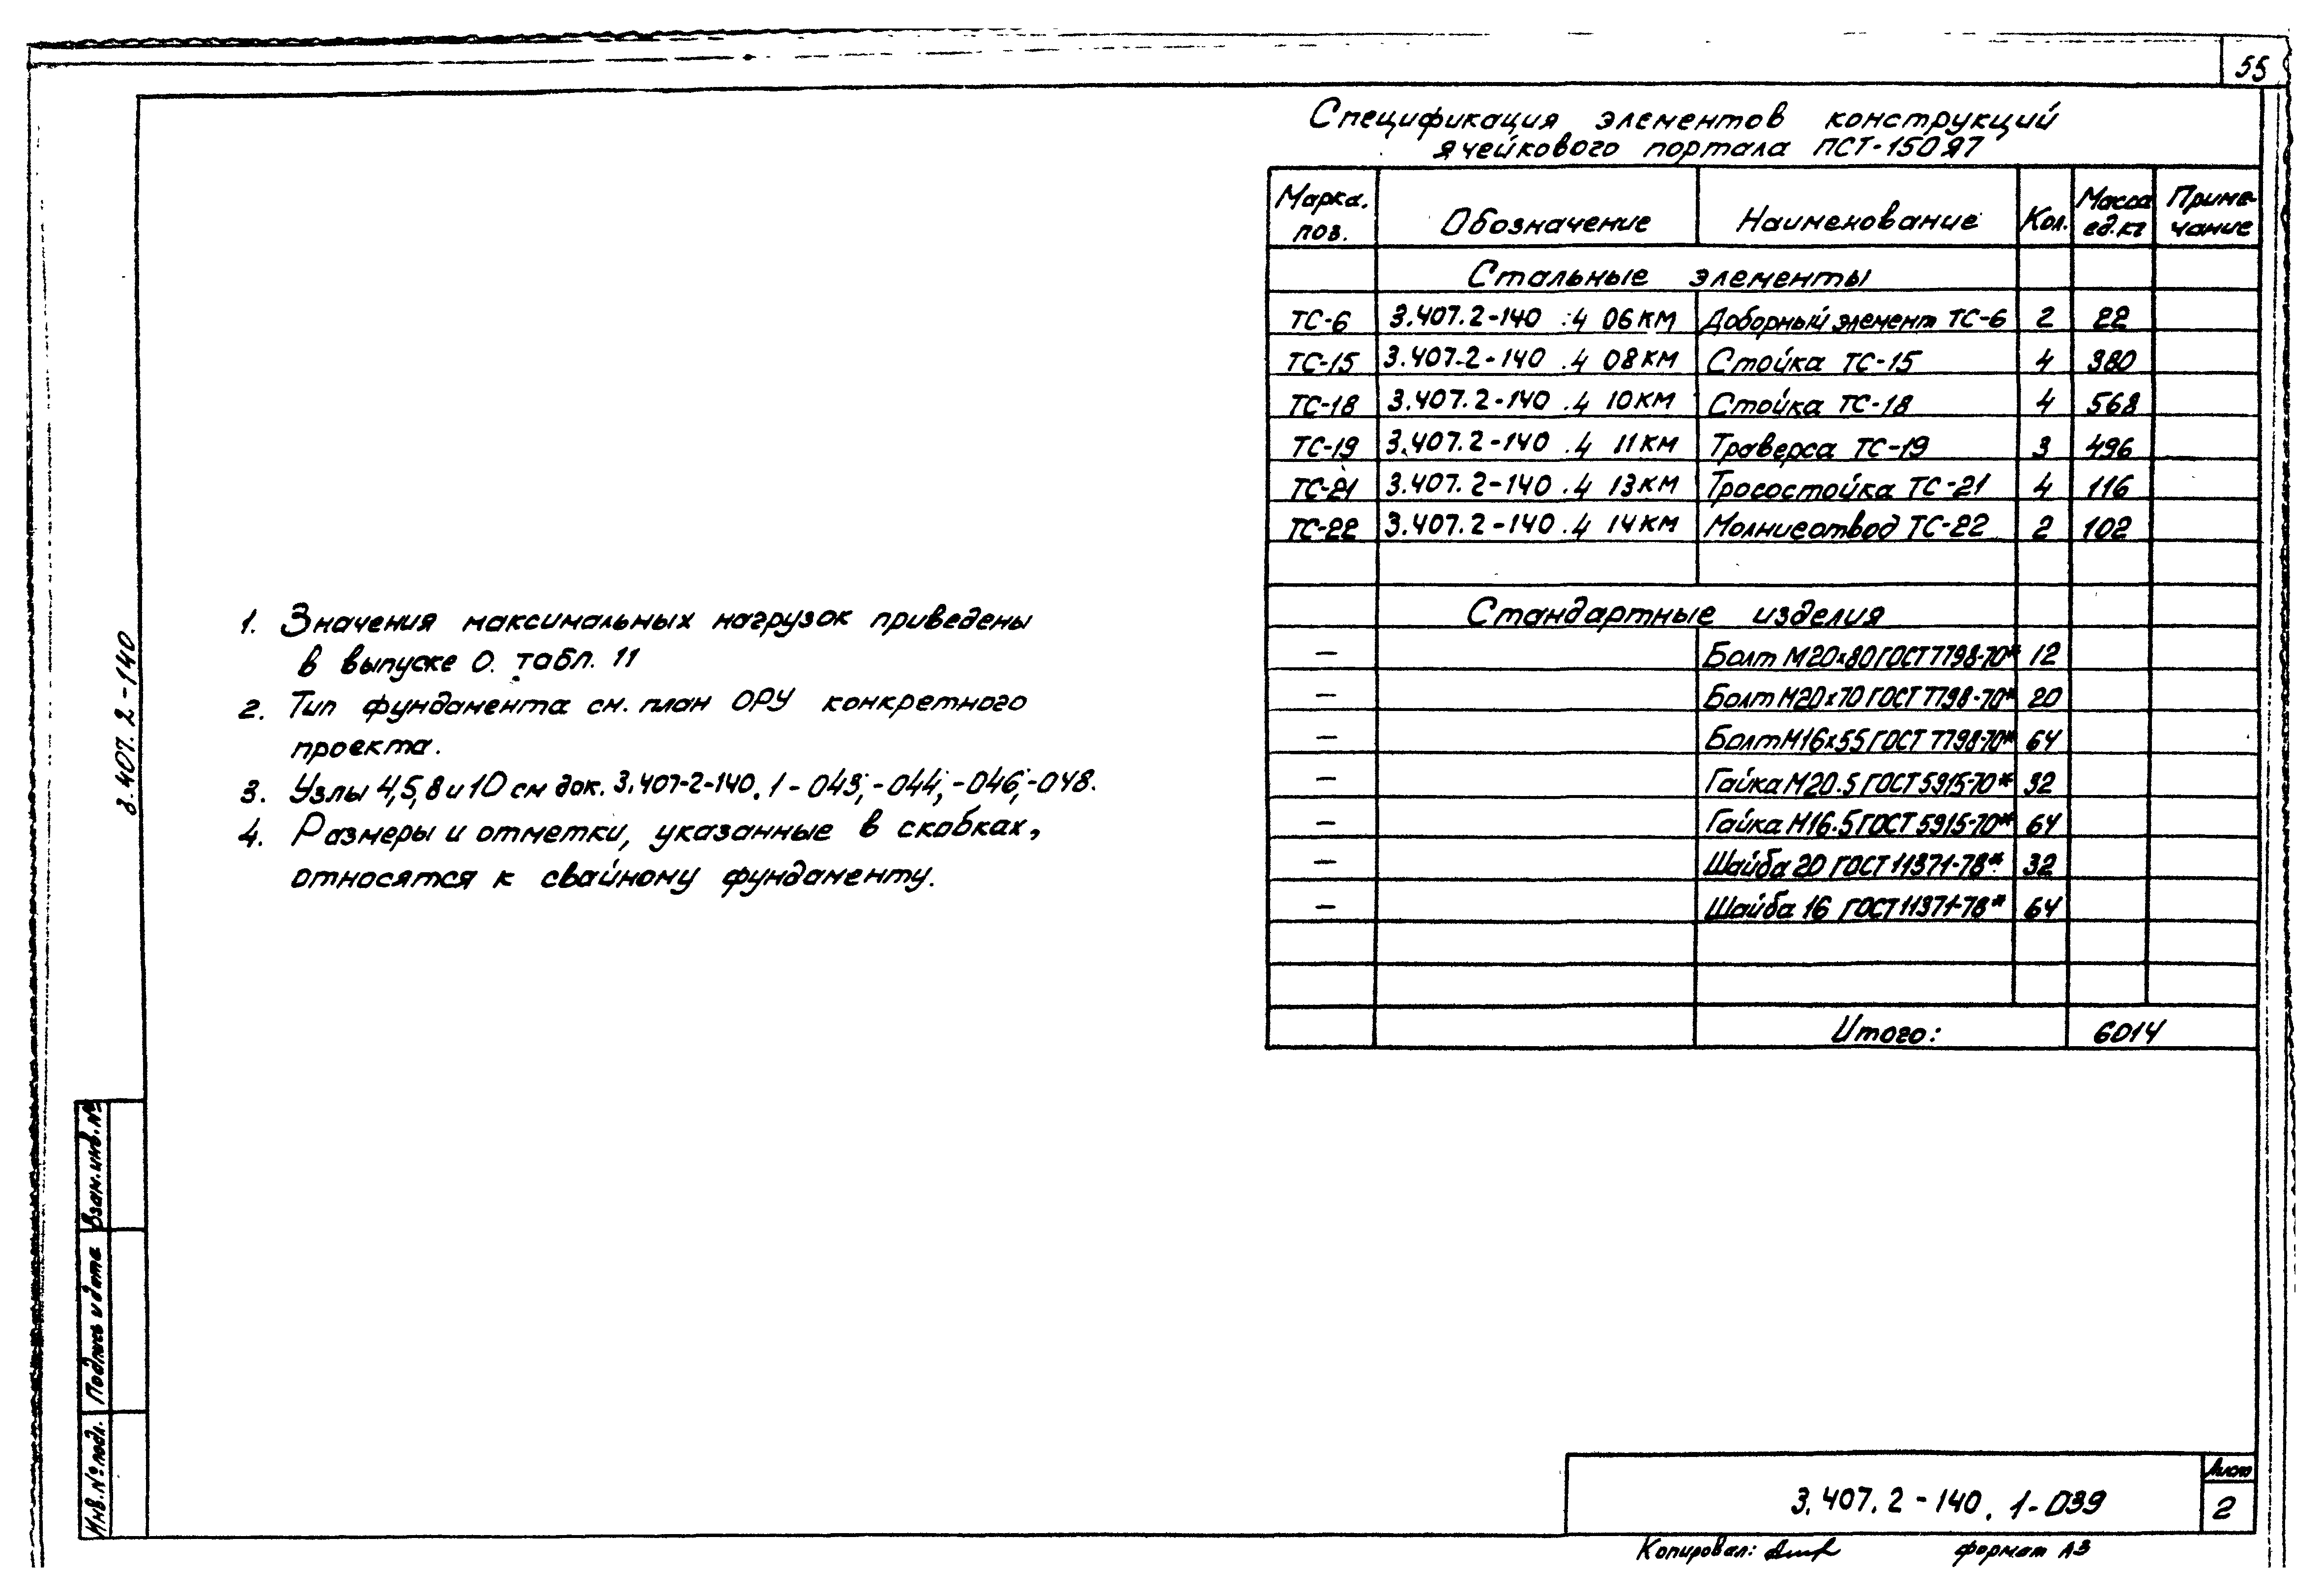 55
Спецификация элементов конструкций
ячейкового портала ПСТ-150Я7
Марка. поз. Обозначение Наименование Кол. Масса ед.кг Приме-чание
Стальные элементы
ТС-6 3.407.2-140 .4 06КМ Доборный элемент ТС-6 2 22
ТС-15 3.407-2-140 .4 08КМ Стойка ТС-15 4 380
ТС-18 3.407.2-140 .4 10КМ Стойка ТС-18 4 568
ТС-19 3.407.2-140 .4 11КМ Траверса ТС-19 3 496
ТС-21 3.407.2-140 .4 13КМ Тросостойка ТС-21 4 116
ТС-22 3.407.2-140 .4 14КМ Молниеотвод ТС-22 2 102
Стандартные изделия
— Болт М20х80 ГОСТ 7798-70* 12
— Болт М20х70 ГОСТ 7798-70* 20
— Болт М16х55 ГОСТ 7798-70* 64
— Гайка М20.5 ГОСТ 5915-70* 32
— Гайка М16.5 ГОСТ 5915-70* 64
— Шайба 20 ГОСТ 11371-78* 32
— Шайба 16 ГОСТ 11371-78* 64
Итого: 6014
1. Значения максимальных нагрузок приведены
в выпуске 0. табл. 11
2. Тип фундамента см. план ОРУ конкретного
проекта.
3. Узлы 4,5,8 и 10 см док. 3.407-2-140.1-043;-044;-046;-048.
4. Размеры и отметки, указанные в скобках,
относятся к свайному фундаменту.
3.407.2-140
Взам.инв.№
Подпись и дата
Инв.№ подл.
3.407.2-140.1-039
Лист
2
Копировал:
формат А3